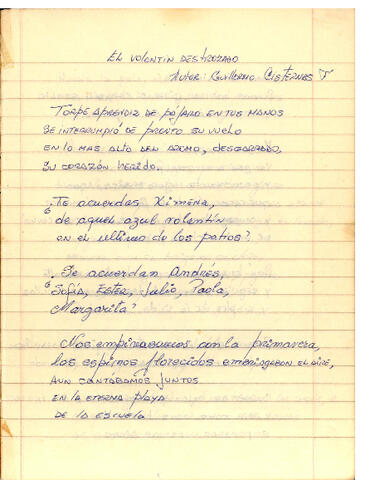 EL VOLANTÍN DESTROZADO
AUTOR: GUILLERMO CISTERNAS F
TORPE APRENDIZ DE PÁJARO EN TUS MANOS
SE INTERRUMPIÓ DE PRONTO SU VUELO
EN LO MAS ALTO DEL AROMO, DESGARRADO,
SU CORAZÓN HERIDO.
¿Te acuerdas Ximena,
de aquel azul volantín
en el ultimo de los patios?
¿Se acuerdan Andrés,
Sofía, Ester, Julio, Paola,
Margarita?
Nos empinabamos con la primavera,
los espinos florecidos EL AIRE,
AUN CANTÁBAMOS JUNTOS
EN LA ETERNA PLAYA
DE LA ESCUELA